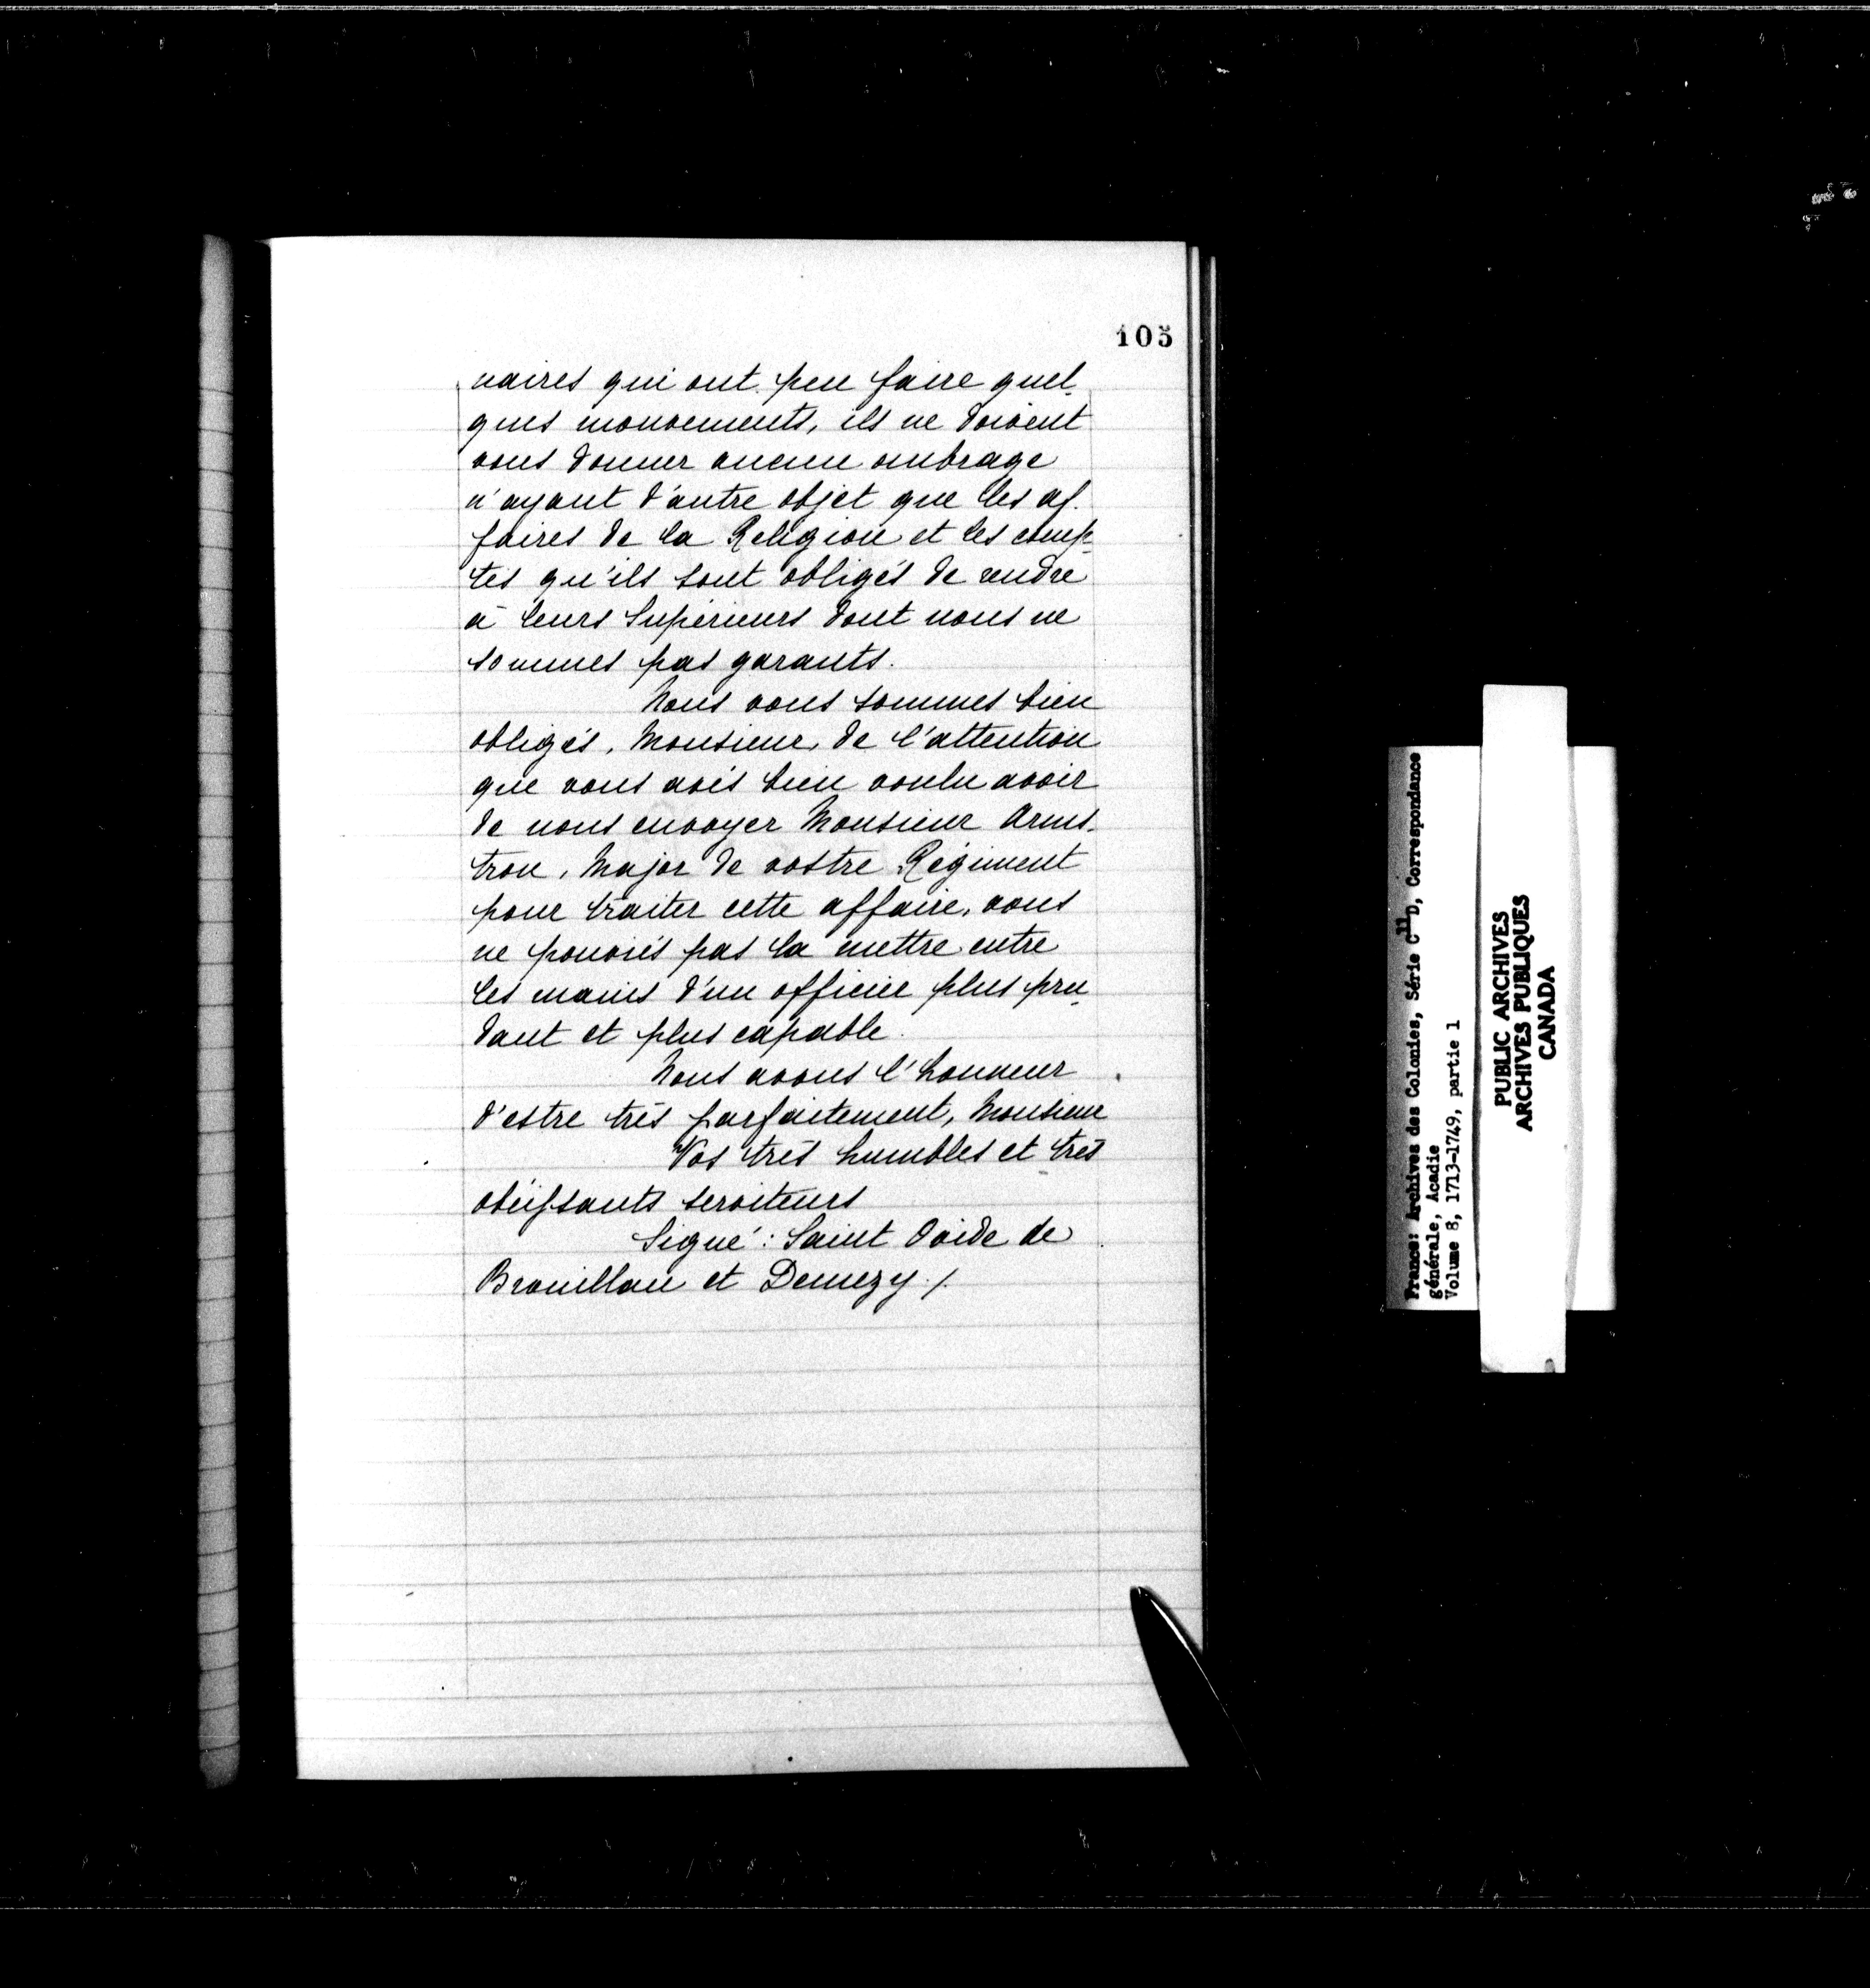 105
naires qui ont peu faire quel-
ques mouvements, ils ne doivent
vous donner aucun ombrage
n'ayant d'autre objet que les af-
faires de la Religion et les comp-
tes qu'ils sont obligés de rendre
à leurs Supérieurs dont nous ne
sommes pas garants.
Nous vous sommes bien
obligés, Monsieur, de l'attention
que vous avés bien voulu avoir
de nous envoyer Monsieur Arms-
tron, Major de vostre Régiment
pour traiter cette affaire, vous
ne pouviés pas la mettre entre
les mains d'un officier plus pru-
dant et plus capable.
Nous avons l'honneur
d'estre très parfaitement, Monsieur
Vos très humbles et très
obéissants serviteurs
Signé: Saint Ovide de
Brouillan et Demezy /.
France: Archives des Colonies, Série C11D, Correspondance
générale, Acadie
Volume 8, 1713-1749, partie 1
PUBLIC ARCHIVES
ARCHIVES PUBLIQUES
CANADA